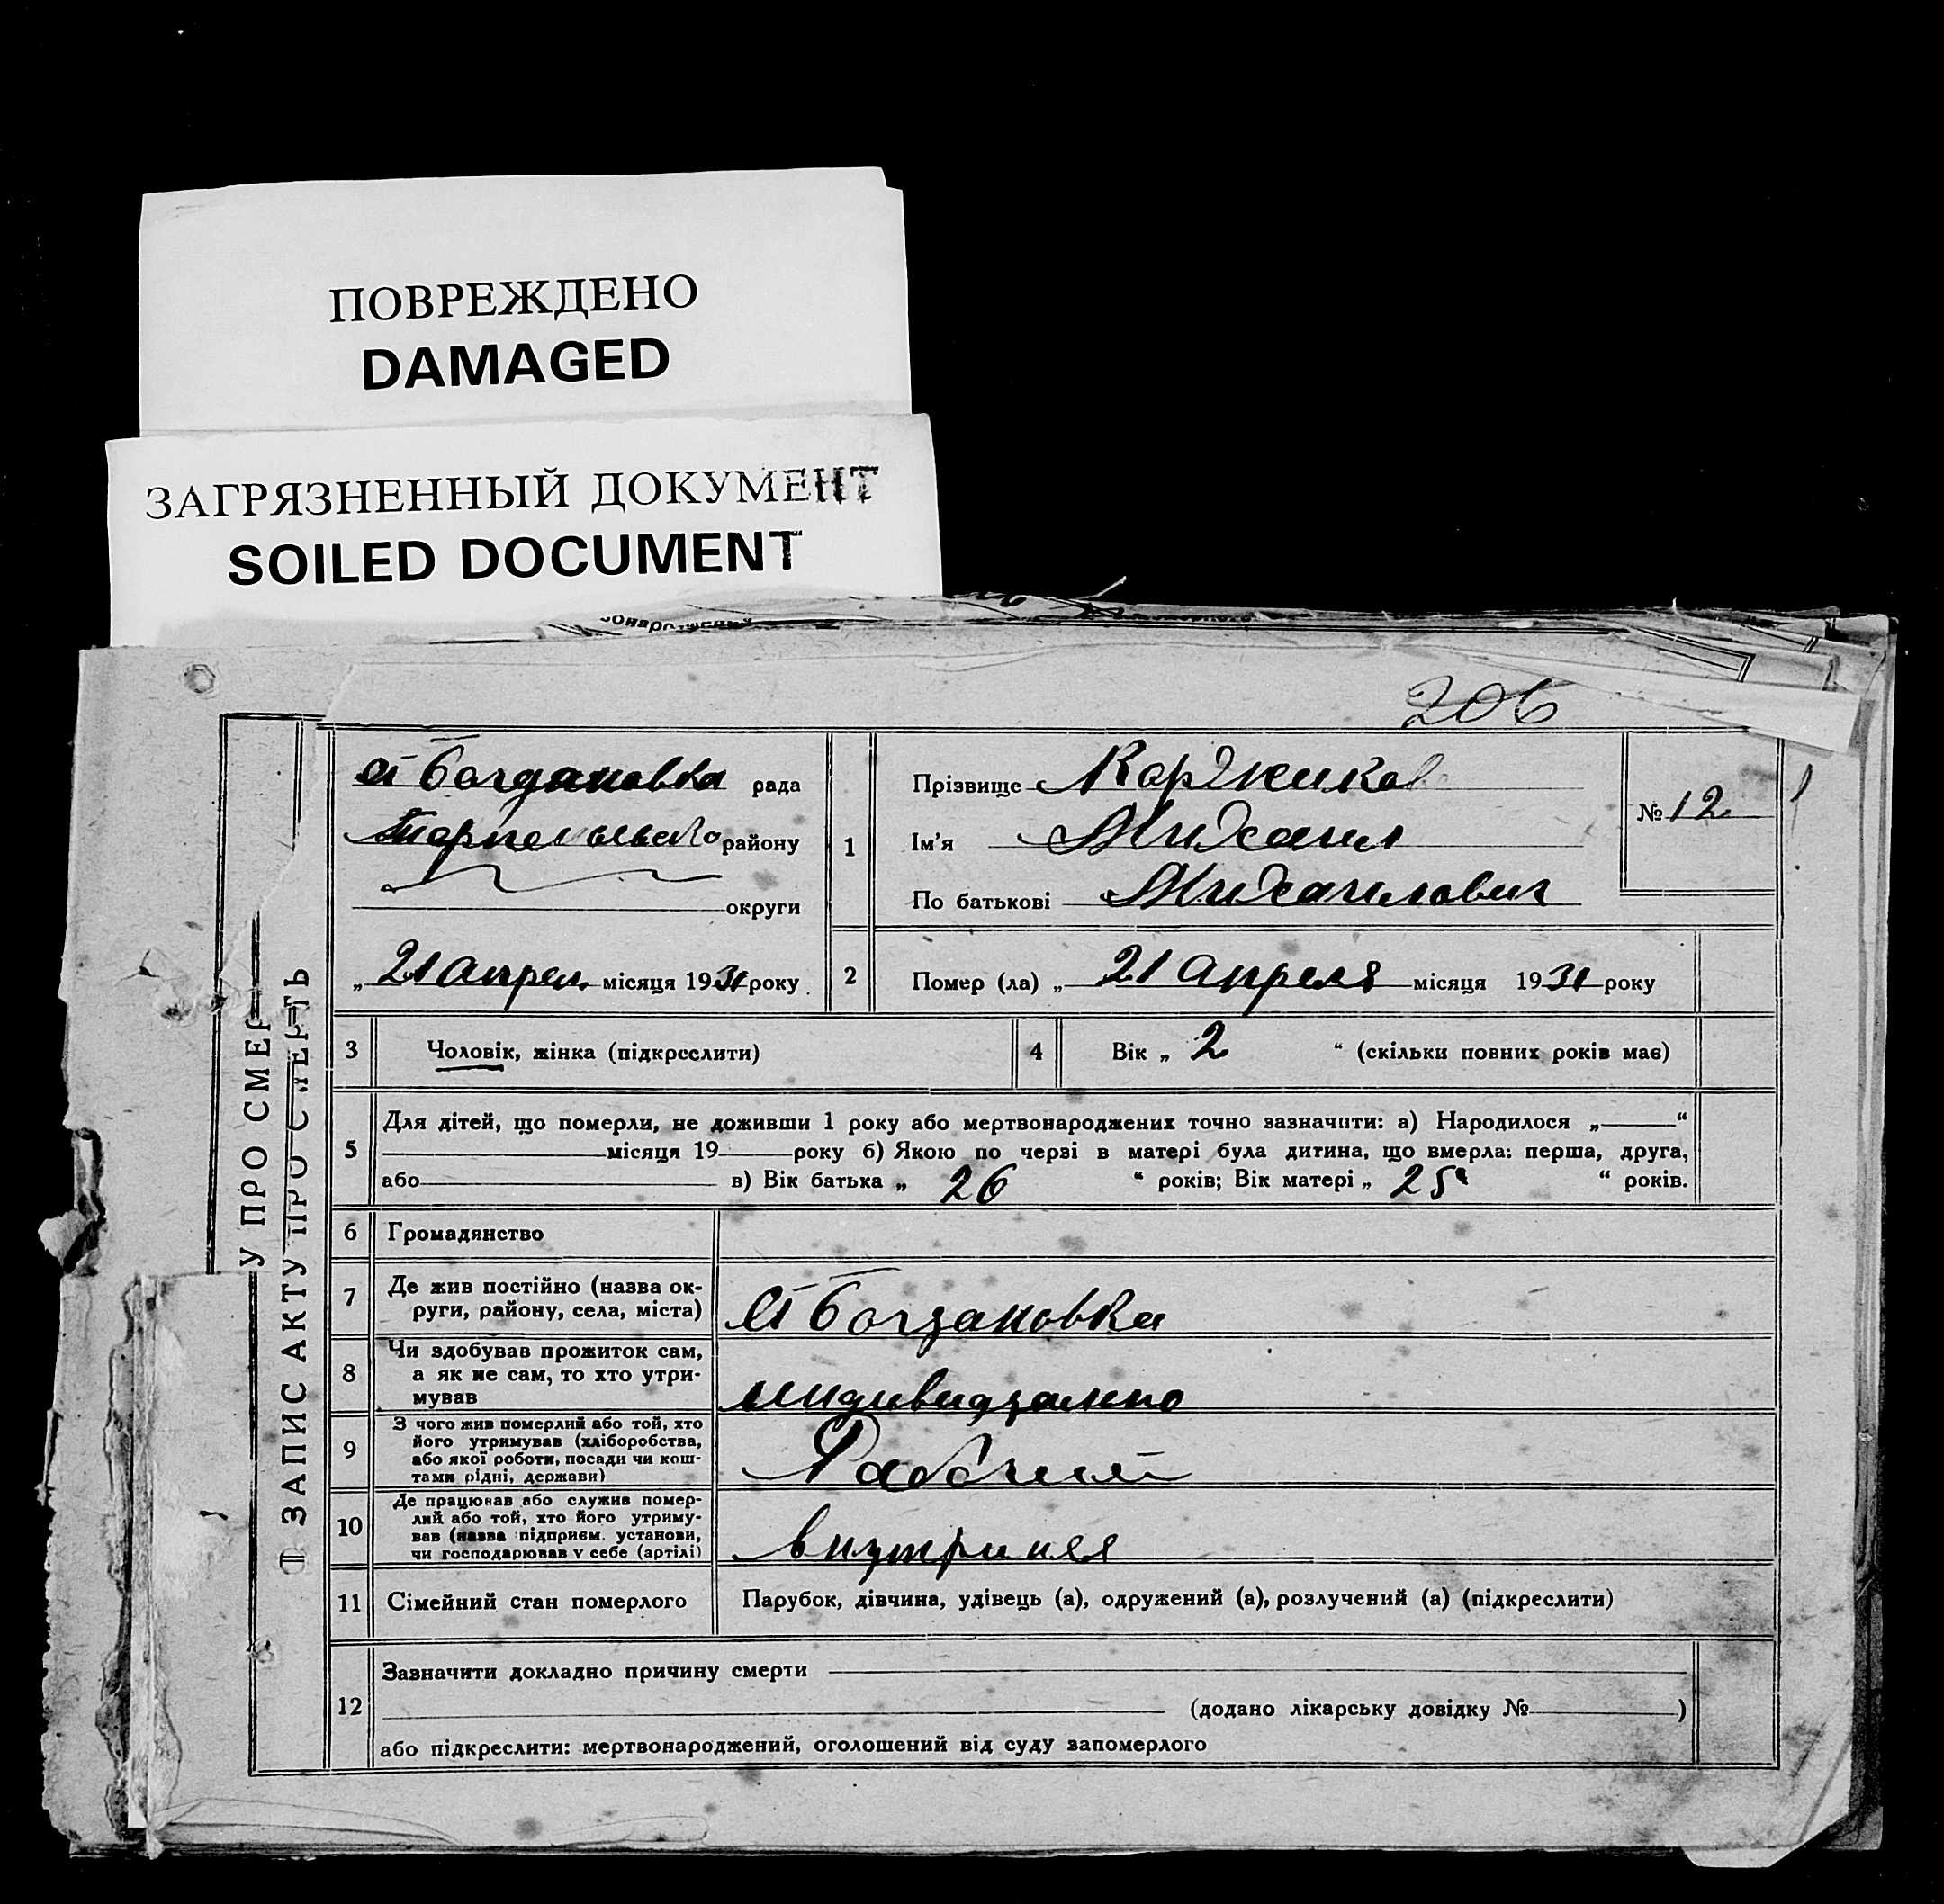 ПОВРЕЖДЕНО
DAMAGED
ЗАГРЯЗНЕННЫЙ ДОКУМЕНТ
SOILED DOCUMENT
206
У ПРО СМЕР
ЗАПИС АКТУ ПРО СМЕРТЬ
Богдановка рада
району
округи
„ 21 апрел. місяця 1931 року
1
Прізвище Коржиков
Ім'я Михаил
По батькові Михаилович
№ 12
2 Помер (ла) „ 21 апреля місяця 1931 року
3 Чоловік, жінка (підкреслити)
4 Вік „ 2 “ (скільки повних років має)
5 Для дітей, що померли, не доживши 1 року або мертвонароджених точно зазначити: а) Народилося „ “
місяця 19 року б) Якою по черзі в матері була дитина, що вмерла: перша, друга,
або в) Вік батька „ 26 “ років; Вік матері „ 25 “ років.
6 Громадянство
7 Де жив постійно (назва ок-
руги, району, села, міста) Богдановка
8 Чи здобував прожиток сам,
а як не сам, то хто утри-
мував
9 З чого жив померлий або той, хто
його утримував (хліборобства,
або якої роботи, посади чи кош-
тами рідні, держави) Рабочий
10 Де працював або служив помер-
лий або той, хто його утриму-
вав (назва підприєм. установи,
чи господарював у себе (артілі)
11 Сімейний стан померлого Парубок, дівчина, удівець (а), одружений (а), розлучений (а) (підкреслити)
12 Зазначити докладно причину смерти
(додано лікарську довідку № )
або підкреслити: мертвонароджений, оголошений від суду запомерлого